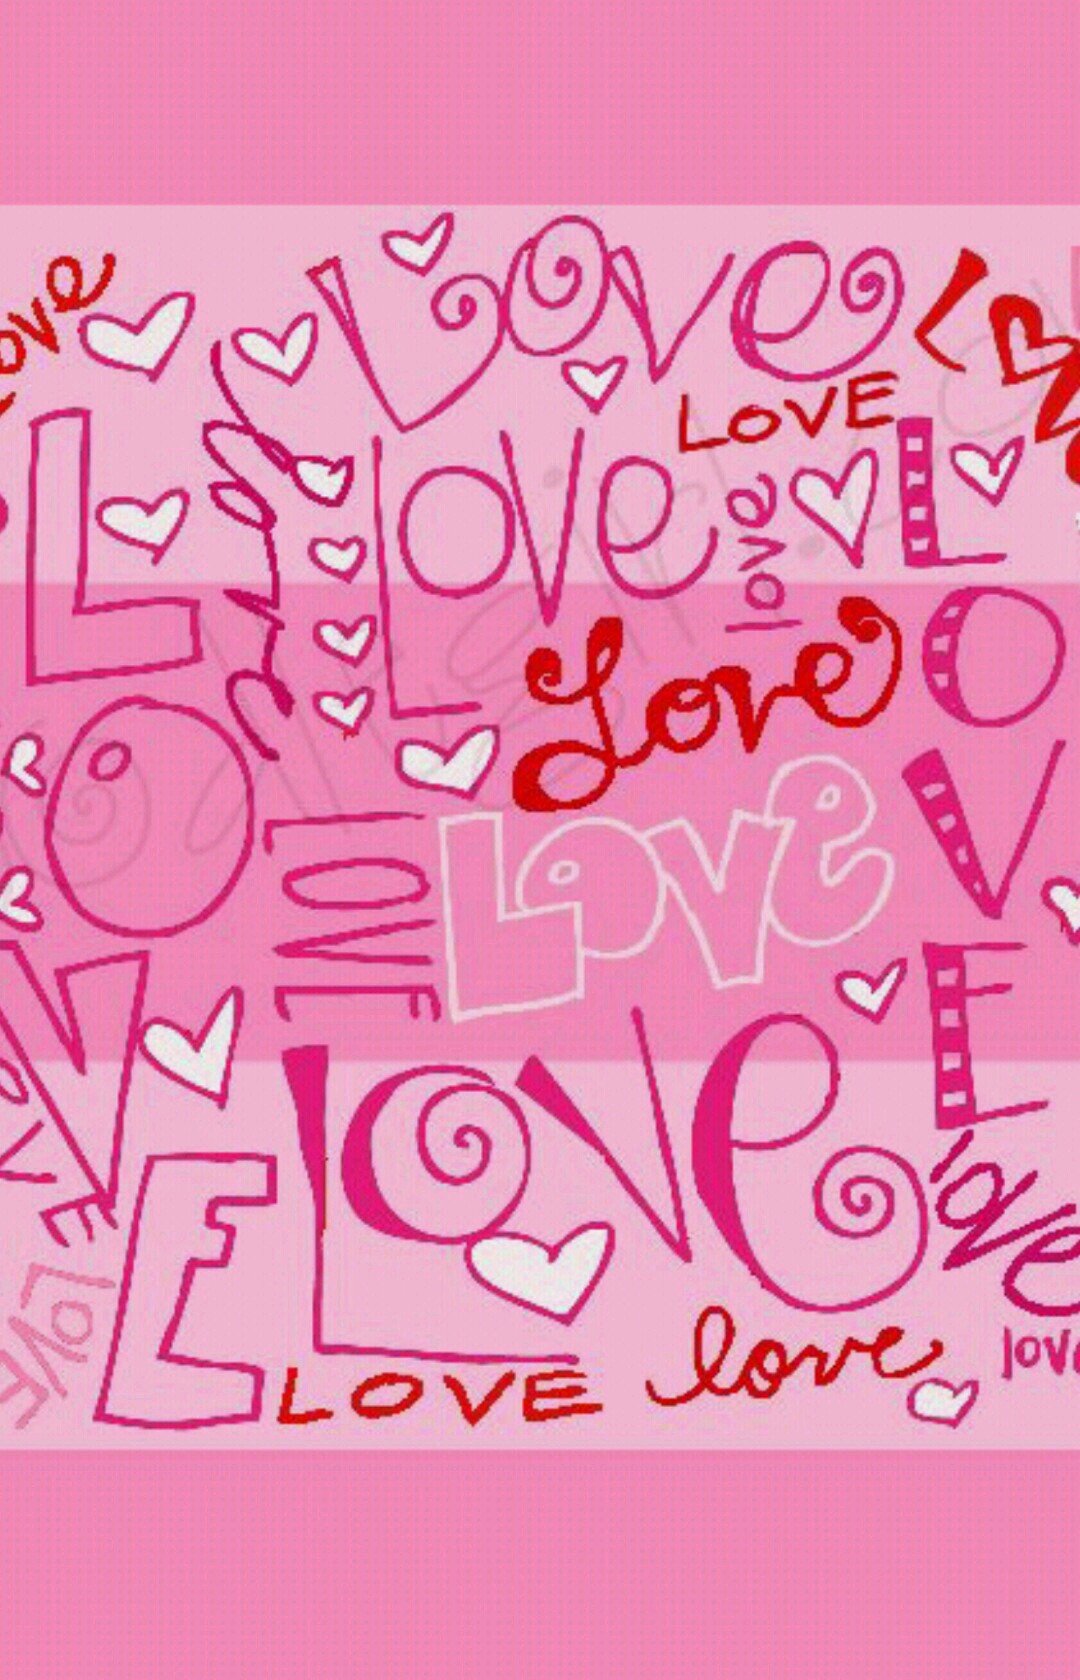 Love
love
LOVE
LOVE
Love
love
LOVE
Love
Love
LOVE
LOVE
LOVE
LOVE
Love
love
LOVE
love